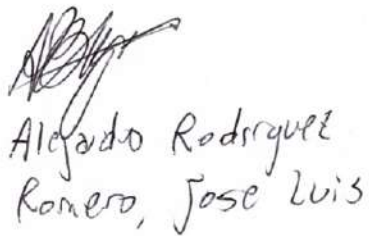 Alejandro Rodriguez
Romero, Jose Luis